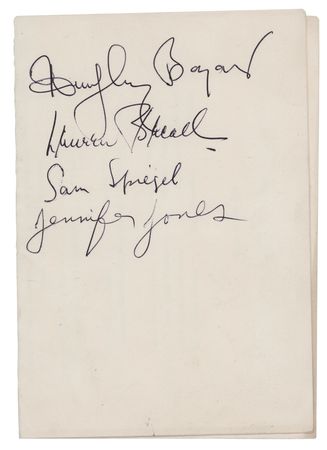 Humphrey Bogart
Lauren Bacall
Sam Spiegel
Jennifer Jones